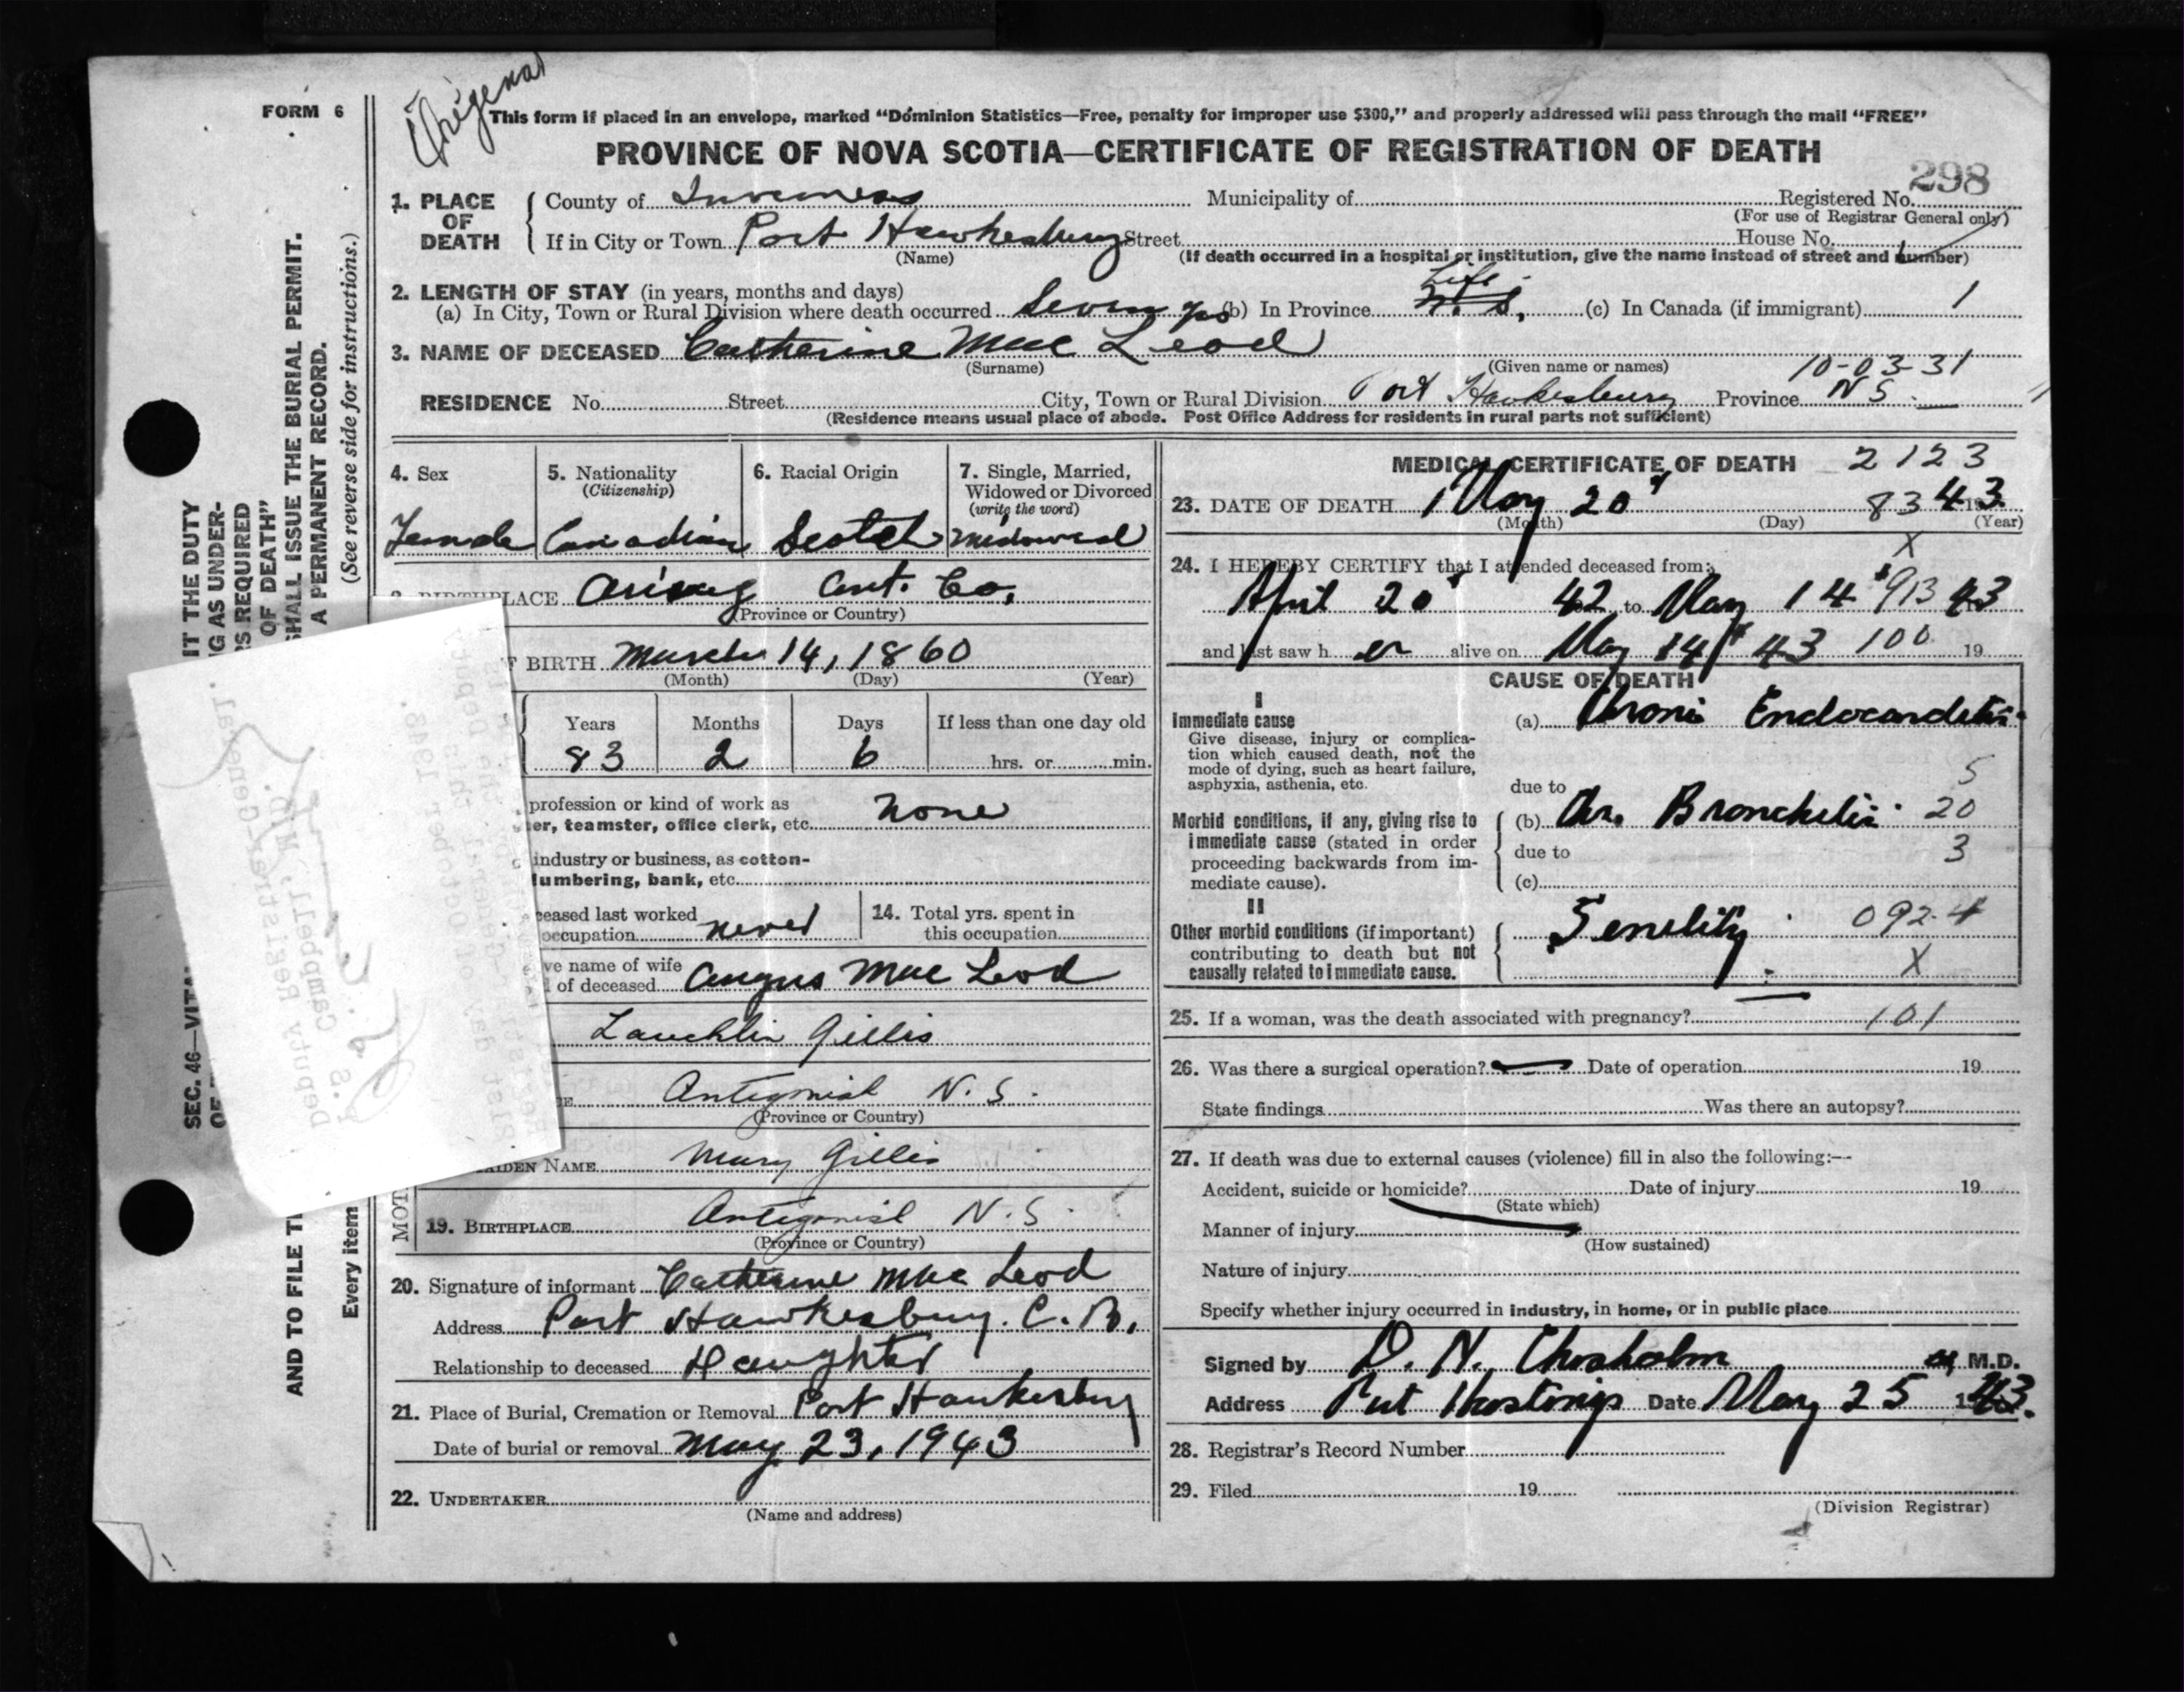 FORM 6
Original
This form if placed in an envelope, marked "Dominion Statistics—Free, penalty for improper use $300," and properly addressed will pass through the mail "FREE"
PROVINCE OF NOVA SCOTIA—CERTIFICATE OF REGISTRATION OF DEATH
298
1. PLACE OF DEATH County of Inverness Municipality of Registered No.
(For use of Registrar General only)
If in City or Town Port Hawkesbury Street House No.
(Name) (If death occurred in a hospital or institution, give the name instead of street and number)
2. LENGTH OF STAY (in years, months and days) Life
(a) In City, Town or Rural Division where death occurred Seven yrs (b) In Province N.S. (c) In Canada (if immigrant) 1
3. NAME OF DECEASED Catherine Mac Leod
(Surname) (Given name or names) 10-03-31
RESIDENCE No. Street City, Town or Rural Division Port Hawkesbury Province N S.
(Residence means usual place of abode. Post Office Address for residents in rural parts not sufficient)
4. Sex 5. Nationality 6. Racial Origin 7. Single, Married,
(Citizenship) Widowed or Divorced
(write the word)
Female Canadian Scotch Widowed
PLACE Arisaig Ant. Co.
(Province or Country)
BIRTH March 14, 1860
(Month) (Day) (Year)
Years Months Days If less than one day old
83 2 6 hrs. or min.
profession or kind of work as
er, teamster, office clerk, etc. None
industry or business, as cotton-
lumbering, bank, etc.
ceased last worked 14. Total yrs. spent in
occupation never this occupation
ve name of wife
of deceased Angus Mac Leod
Lauchlin Gillis
Antigonish N.S.
(Province or Country)
IDEN NAME Mary Gillis
MOT
19. BIRTHPLACE Antigonish N.S.
(Province or Country)
20. Signature of informant Catherine Mac Leod
Address Port Hawkesbury. C.B.
Relationship to deceased Daughter
21. Place of Burial, Cremation or Removal Port Hawkesbury
Date of burial or removal May 23, 1943
22. UNDERTAKER
(Name and address)
MEDICAL CERTIFICATE OF DEATH 2123
23. DATE OF DEATH May 20 83 43
(Month) (Day) (Year)
X
24. I HEREBY CERTIFY that I attended deceased from:
April 20 42 to May 14 913 43
and last saw her alive on May 14 43 100 19
CAUSE OF DEATH
I
Immediate cause (a) Chronic Endocarditis
Give disease, injury or complica-
tion which caused death, not the
mode of dying, such as heart failure,
asphyxia, asthenia, etc. due to 5
Morbid conditions, if any, giving rise to (b) Chr. Bronchitis 20
immediate cause (stated in order due to 3
proceeding backwards from im-
mediate cause). (c)
II
Other morbid conditions (if important) Senility 092.4
contributing to death but not
causally related to immediate cause. X
25. If a woman, was the death associated with pregnancy? 101
26. Was there a surgical operation? Date of operation 19
State findings Was there an autopsy?
27. If death was due to external causes (violence) fill in also the following:—
Accident, suicide or homicide? Date of injury 19
(State which)
Manner of injury
(How sustained)
Nature of injury
Specify whether injury occurred in industry, in home, or in public place
Signed by D. N. Chisholm M.D.
Address Port Hastings Date May 25 1943.
28. Registrar's Record Number
29. Filed 19
(Division Registrar)
IT THE DUTY
G AS UNDER-
S REQUIRED
OF DEATH"
SHALL ISSUE THE BURIAL PERMIT.
A PERMANENT RECORD.
(See reverse side for instructions.)
SEC. 46—VITAL
AND TO FILE
Every item
Deputy Registrar-General.
Campbell, M.D.
October 1948.